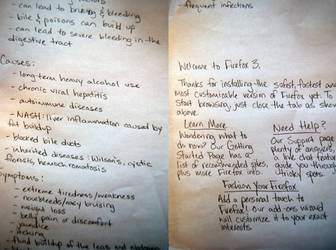 - can lead to bruising & bleeding
- bile & poisons can build up
- can lead to severe bleeding in the
digestive tract
Causes:
- long-term heavy alcohol use
- chronic viral hepatitis
- autoimmune diseases
- NASH: liver inflammation caused by
fat buildup
- blocked bile ducts
- inherited diseases: Wilson's, cystic
fibrosis, hemochromatosis
Symptoms:
- extreme tiredness/weakness
- nosebleeds/easy bruising
- weight loss
- belly pain or discomfort
- jaundice
- itching
- fluid buildup of the legs and abdomen
frequent infections
Welcome to Firefox 3.
Thanks for installing the safest, fastest and
most customizable version of Firefox yet. To
start browsing, just close the tab as shown
above.
Learn More
Wondering what to
do now? Our Getting
Started Page has a
list of recommended sites,
plus more Firefox info.
Need Help?
Our Support
plenty of answers,
a live chat
you through
spots
Fashion Your Firefox
Add a personal touch to
Firefox! Our add-ons
will customize it to your exact
interests.